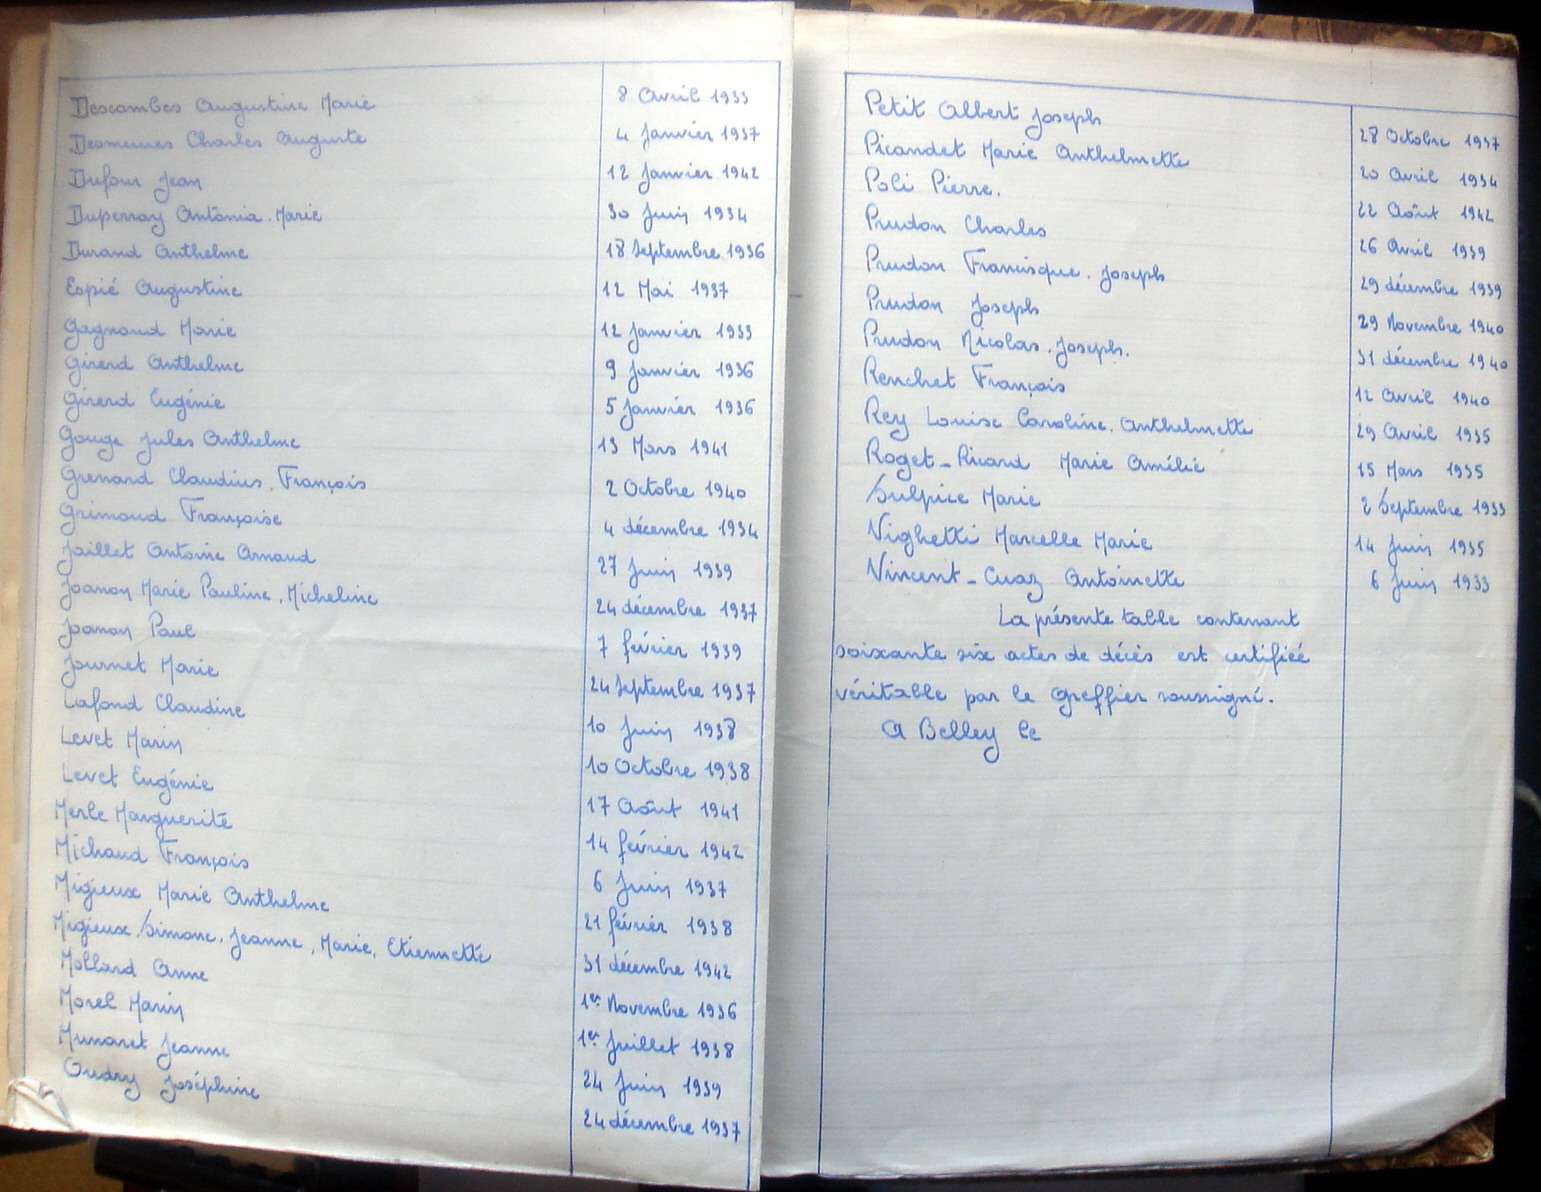 Descombes Augustine Marie 8 Avril 1933
Desmeures Charles Auguste 4 Janvier 1937
Dufour Jean 12 Janvier 1942
Duperray Antonia. Marie 30 Juin 1934
Durand Anthelme 18 Septembre 1936
Espié Augustine 12 Mai 1937
Gagnoud Marie 12 Janvier 1933
Girerd Anthelme 9 Janvier 1936
Girerd Eugénie 5 Janvier 1936
Gouge Jules Anthelme 13 Mars 1941
Grenard Claudius, François 2 Octobre 1940
Grimoud Françoise 4 décembre 1934
Jaillet Antoine Arnaud 27 Juin 1939
Joanon Marie Pauline, Micheline 24 décembre 1937
Joanon Paul 7 février 1939
Journet Marie 24 Septembre 1937
Lafond Claudine 10 Juin 1938
Levet Marin 10 Octobre 1938
Levet Eugénie 17 Août 1941
Merle Marguerite 14 février 1942
Michaud François 6 Juin 1937
Migieux Marie Anthelme 21 février 1938
Migieux Simone, Jeanne, Marie, Etiennette 31 décembre 1942
Mollard Anne 1er Novembre 1936
Morel Marin 1er Juillet 1938
Munaret Jeanne 24 Juin 1939
Oudry Joséphine 24 décembre 1937
Petit Albert Joseph 28 Octobre 1937
Picandet Marie Anthelmette 20 Avril 1934
Poli Pierre. 22 Août 1942
Prudon Charles 26 Avril 1939
Prudon Francisque. Joseph 29 décembre 1939
Prudon Joseph 29 Novembre 1940
Prudon Nicolas. Joseph. 31 décembre 1940
Renchet François 12 Avril 1940
Rey Louise Caroline. Anthelmette 29 Avril 1935
Roget-Ricard Marie Amélie 15 Mars 1935
Sulpice Marie 2 Septembre 1933
Vighetti Marcelle Marie 14 Juin 1935
Vincent-Cuaz Antoinette 6 Juin 1933
La présente table contenant
soixante six actes de décès est certifiée
véritable par le Greffier soussigné.
A Belley le